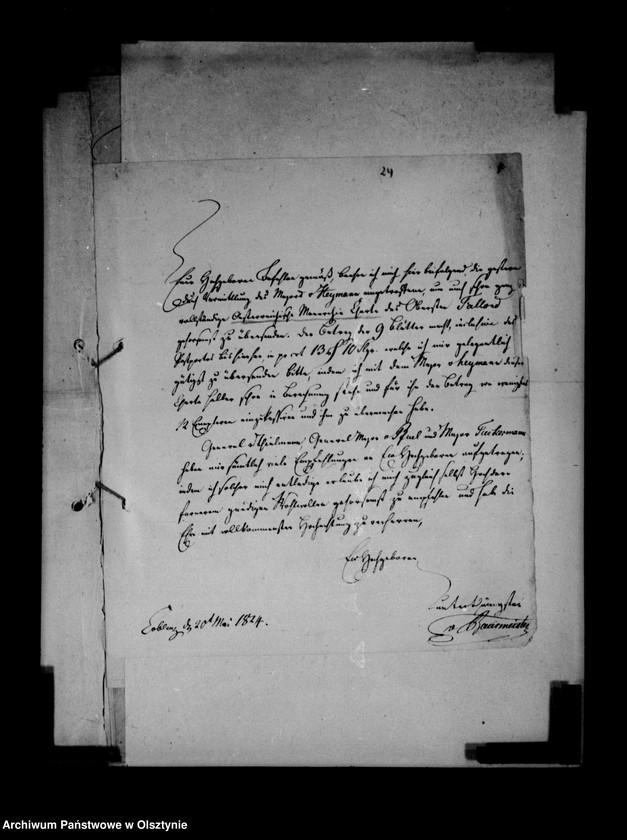 24
Euer Hochgeboren Befehlen gemäß, beehre ich mich hier beifolgend die gestern
durch Vermittlung des Majors v Heymann eingetroffene, um auch schon ganz
vollständige Oesterreichische Monarchie Charte des Obersten Fallon
gehorsamst zu übersenden. Der Betrag der 9 Blätter macht, inclusive des
Portos bis hierher, in pr. crt 13 10 Sgr. welche ich mir gelegentlich
gütigst zu übersenden bitte, indem ich mit dem Major v Heymann dieser
Charte halber schon in Berechnung stehe und für ihn den Betrag von
12 Exemplaren einzukassiren und ihm zu übermachen habe.
General Thielmann, General Major v Pfuel und Major Tuckermann
haben mir sämtlich viele Empfehlungen an Ew Hochgeboren aufgetragen;
indem ich solcher mich entledige erlaube ich mich zugleich selbst Hochdero
fernerem gnädigen Wohlwollen gehorsamst zu empfehlen und habe die
Ehre mit vollkommenster Hochachtung zu verharren,
Ew Hochgeboren
Coblenz den 20t Mai 1824.
unterthänigster
Archiwum Państwowe w Olsztynie